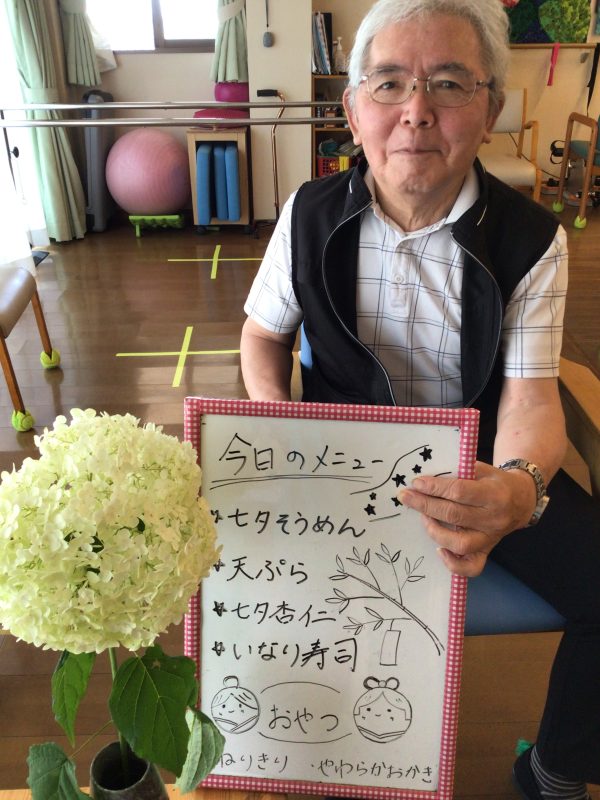 今日のメニュー
七夕そうめん
天ぷら
七夕杏仁
いなり寿司
おやつ
ねりきり ・やわらかおかき